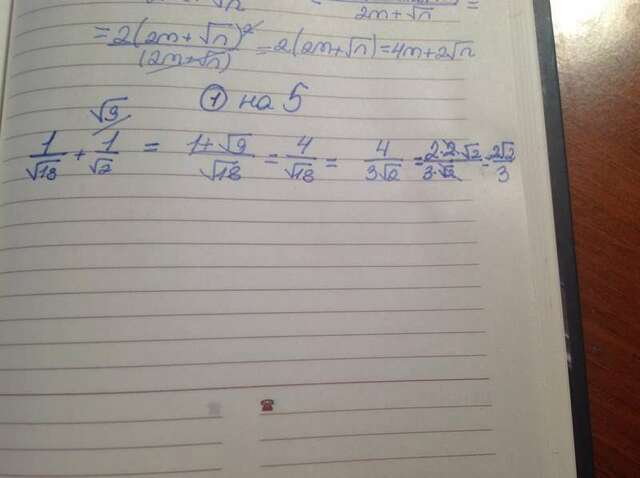 2m+√n =
= 2(2m+√n)² / (2m+√n) = 2(2m+√n) = 4m+2√n
① на 5
√9
1/√18 + 1/√2 = 1+√9/√18 = 4/√18 = 4/3√2 = 2·2·√2/3·√2 = 2√2/3